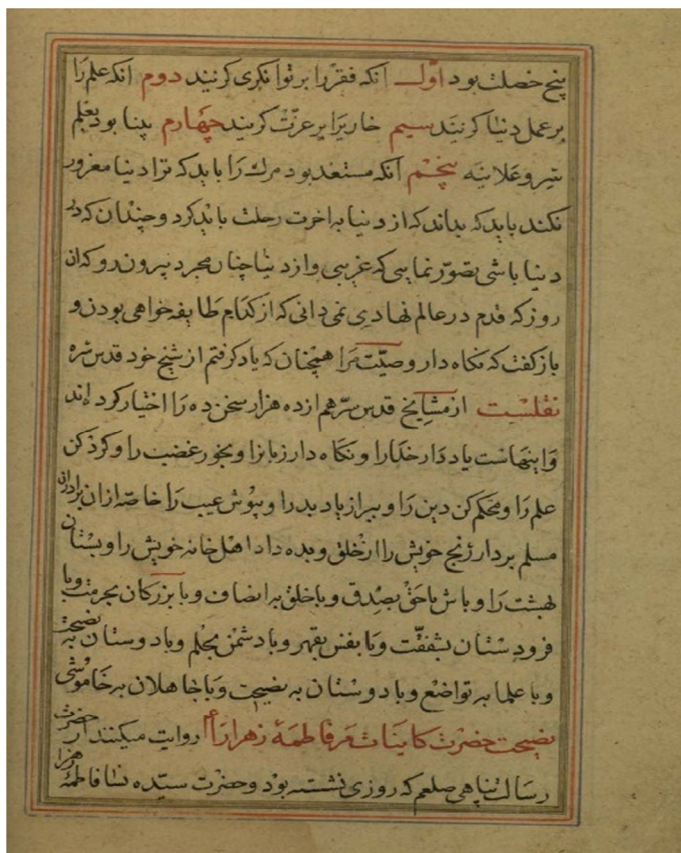 پنج خصلت بود اول آنکه فقر را بر توانکری کزیند دوم آنکه علم را
بر عمل دنیا کزیند سیم خاریرا بر عزت کزیند چهارم بینا بود بعلم
سر و علانیه پنجم آنکه مستعد بود مرك را باید که ترا دنیا مغرور
نکند باید که بداند که از دنیا به اخرت رحلت باید کرد و چندان که در
دنیا باشی تصور نمایی که غریبی و از دنیا چنان مجرد بیرون رو که ان
روز که قدم در عالم نهادی نمی دانی که از کدام طایفه خواهی بودن و
باز کفت که نکاه دار وصیت مرا همچنان که یاد کرفتم از شیخ خود قدس سره
نقلست از مشایخ قدس سرهم از ده هزار سخن ده را اختیار کرده اند
و اینهاست یاد دار خدا را و نکاه دار زبانرا و بخور غضب را و کرد کن
علم را و محکم کن دین را و ببر از یاد بد را و بپوش عیب را خاصه از ان برادران
مسلم بردار رنج خویش را از خلق و بده داد اهل خانه خویش را و بستان
بهشت را و باش با حق بصدق و با خلق به انصاف و با بزرکان بحرمت و با
فرودستان بشفقت و با نفس بقهر و با دشمن بحلم و با دوستان به نصیحت
و با علما به تواضع و با دوستان به نصیحت و با جاهلان به خاموشی
نصیحت حضرت کاینات مر فاطمهٔ زهرا را روایت میکنند از حضرت
رسالت پناهی صلعم که روزی نشسته بود و حضرت سیده نسا فاطمهٔ زهرا